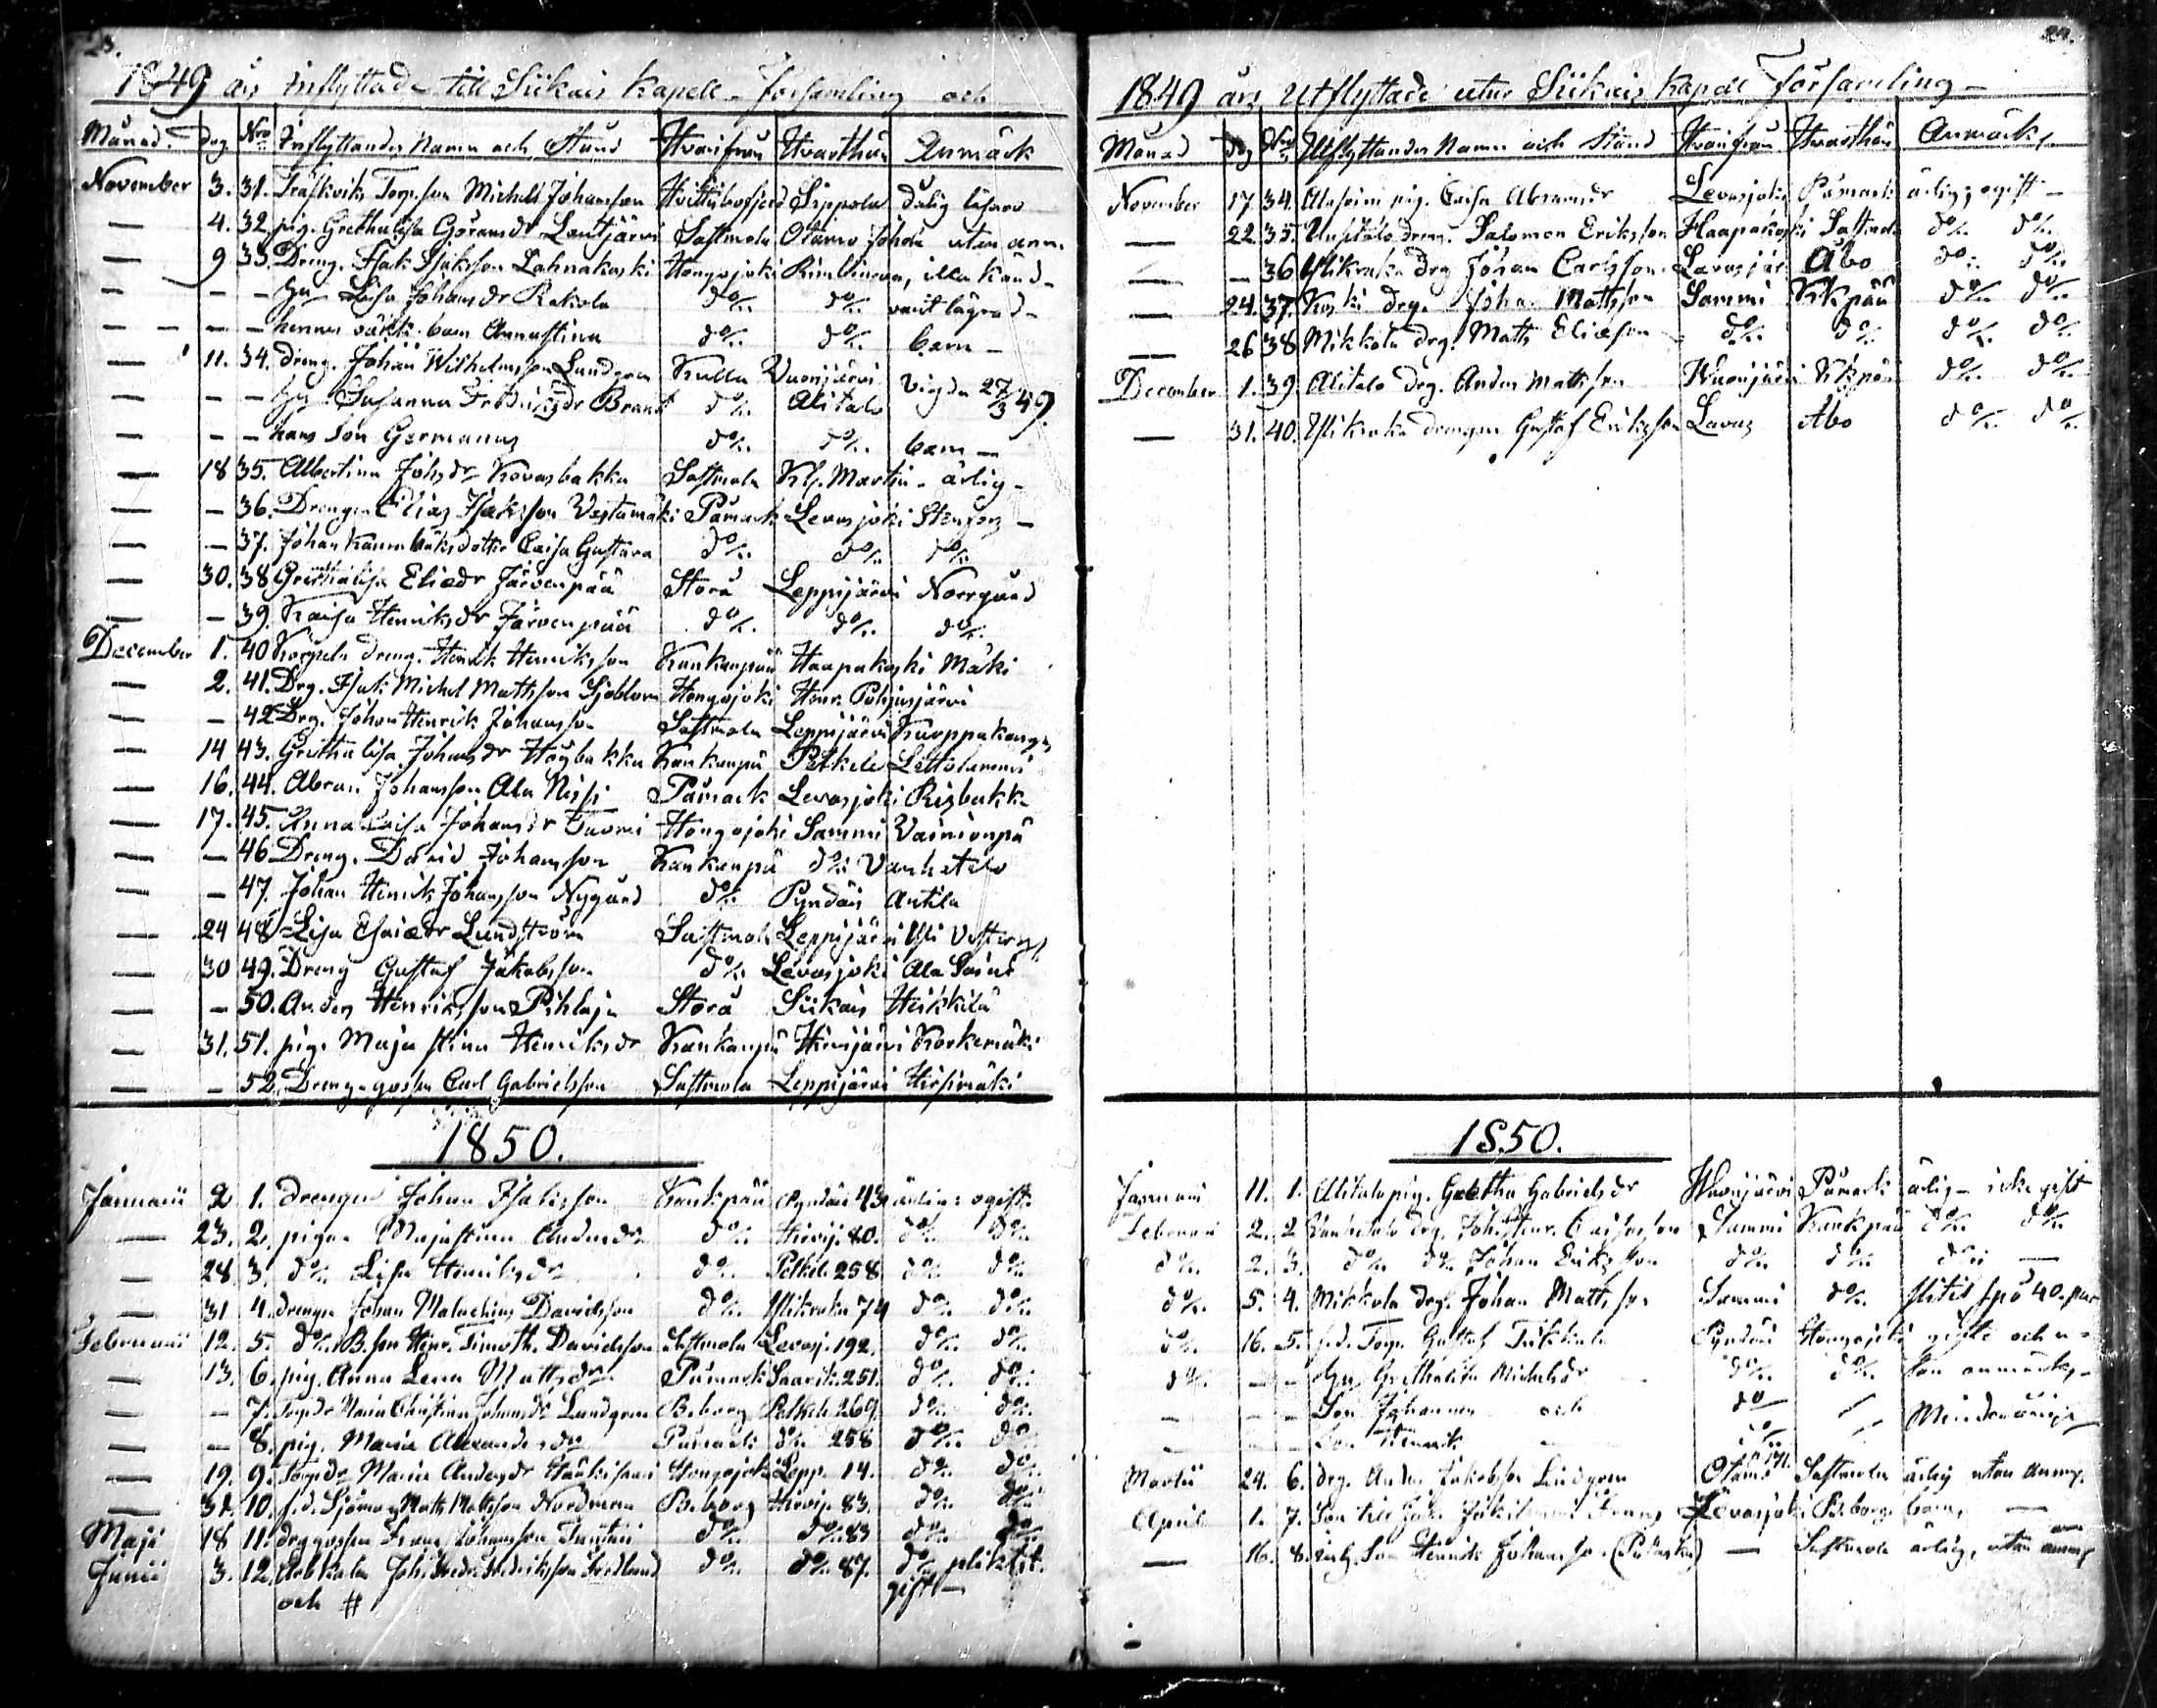 23.
1849 års Inflyttade till Siikais Kapell-Församling och
Månad. Dag Nro Inflyttandes Namn och Stånd Hvarifrån Hvarthän Anmärk
November 3. 31. Torp.son Michel Johansson Hvittisbofjerd Sippola dålig läsare
— 4. 32. pig. Gretha Lisa Göransdr Lautjärvi Sastmola Otamo Johola utan anm.
— 9 33. Dreng. Isak Isaksson Lahnakoski Hongojoki illa känd -
— — — Hu Lisa Johansdr Rakola do/. do/. varit lägrad -
— — — hennes oäkta barn Annastina do/. do/. barn —
— 11. 34. dreng. Johan Wilhelmsson Lundgren Kulla Vuorijärvi
— — — Hu Susanna Fredriksdr Brand do/. Alitalo Vigda 27/3 49.
— — — hans Son Germanus do/. do/. barn —
— 18 35. Albertina Johsdr Kovasbakka Sastmola Kl. Martin. ärlig -
— — 36. Drengen Elias Isaksson Vestamäki Påmark Levasjoki Stenfors —
— — 37. Johan dotter Caisa Gustava do/. do/. do/.
— 30. 38 Gretha Lisa Eliædr Järvenpää Storå Leppijärvi Norrgård
— — 39. Kaisa Henriksdr Järvenpää do/. do/. do/.
December 1. 40 Korpela dreng. Henrik Henriksson Kankanpää Haapakoski Mäki
— 2. 41. Drg. Isak Michel Mattsson Sjöblom Hongojoki Honk. Pohjusjärvi
— — 42 Drg. Johan Henrik Johansson Sastmola Leppijärvi Kurppakangas
— 14 43. Gretha Lisa Johansdr Högbakka Kankanpä Petkele Lettolammi
— 16. 44. Abram Johansson Ala Nissi Påmark Levasjoki Risbakka
— 17. 45. Anna Caisa Johansdr Tuomi Hongojoki Sammi Vainionpä
— — 46 Dreng. David Johansson Kankanpä do/. Vanhatalo
— — 47. Johan Henrik Johansson Nygård do/. Pyndäis Antila
— 24 48 Lisa Esaiædr Lundström Sastmola Leppijärvi Yli
— 30 49. Dreng Gustaf Jakobsson do/. Levasjoki Ala Soini
— — 50. Anders Henriksson Pihlaja Storå Siikais Heikkilä
— 31. 51. pig. Maja Stina Henriksdr Kankanpä Hirvijärvi Korkemäki
— — 52. Dreng-gossen Carl Gabrielsson Sastmola Leppijärvi Hirsimäki
1850.
Januarii 2 1. drengen Johan Isaksson Kankpää Pyndäis 43 ärlig: ogift.
— 23. 2. pigan Majastina Andersdr do/. Hirvij. 80. do/. do/.
— 28 3. do/. Lisa Henriksdr do/. Petkele 258 do/. do/.
— 31 4. drengen Johan Malachias Davidsson do/. Ylikraka 74 do/. do/.
Februarii 12. 5. do/. B.son Henr. Timoth. Davidsson Sastmola Levasj. 192. do/. do/.
— 13. 6. pig. Anna Lena Mattsdr Påmark Saarik. 251. do/. do/.
— — 7. Torpdr Maria Christina Johansdr Lundgren B.borg Petkele 269 do/. do/.
— — 8. pig. Maria Alexandersdr Påmark do/. 258 do/. do/.
— 19. 9. Torpdr Maria Andersdr Hongojoki Lepp. 14. do/. do/.
— 31. 10. f.d. Sjöman Matts Mattsson Nordman B.borg Hirvij. 83. do/. do/.
Maji 18 11. drg gossen Frans Johansson do/. do/. 83 do/. do/.
Junii 3. 12. Joh. Fredr. Fredriksson do/. do/. 87. do/.
och # gift —
24.
1849 års Utflyttade utur Siikais Kapell Församling —
Månad Dag Nro Utflyttandes Namn och Stånd Hvarifrån Hvarthän Anmärk,
November 17 34. Alasoini pig. Caisa Abramsdr Levasjoki Påmark ärlig; ogift —
— 22. 35. Uusitalo dreng. Salomon Eriksson Haapakoski Sastmola do/. do/.
— — 36 Ylikraka drg Johan Carlsson Lavasjär Åbo do/. do/.
— 24. 37. Koski drg. Johan Mattsson Sammi Kkpää do/. do/.
— 26 38 Mikkola drg. Matts Eliæson do/. do/. do/. do/.
December 1. 39. Alitalo drg. Anders Mattsson Wuorijärvi Kkpää do/. do/.
— 31. 40. Ylikraka drengen Gustaf Eriksson Lavas Åbo do/. do/.
1850.
Januarii 11. 1. Alitalo pig. Gretha Gabrielsdr Wuorijärvi Påmark ärlig — icke gift
Februarii 2. 2 Vanhatalo drg. Joh. Henr. Sammi Kankpää do/. do/.
do/. 2. 3. do/. do/. Johan Eriksson do/. do/. do/. —
do/. 5. 4. Mikkola drg. Johan Mattsson Sammi do/. spö 40. par
do/. 16. 5. f.d. Torp. Gustaf Pyndäis Hongojoki gifte och u-
do/. — — Hu Gretha Lisa Michelsdr do/. do/. tan anmärk,-
— — — Son Johannes och do — Minderårige
— — — Son Henrik do/.
Martii 24. 6. drg. Anders Jakobsson Lindgren Otamo Sastmola ärlig utan anm.
April 1. 7. Son till Frans Levasjoki B.borg barn, —
— 16. 8. Son Henrik Johansson — Sastmola ärlig, utan anm